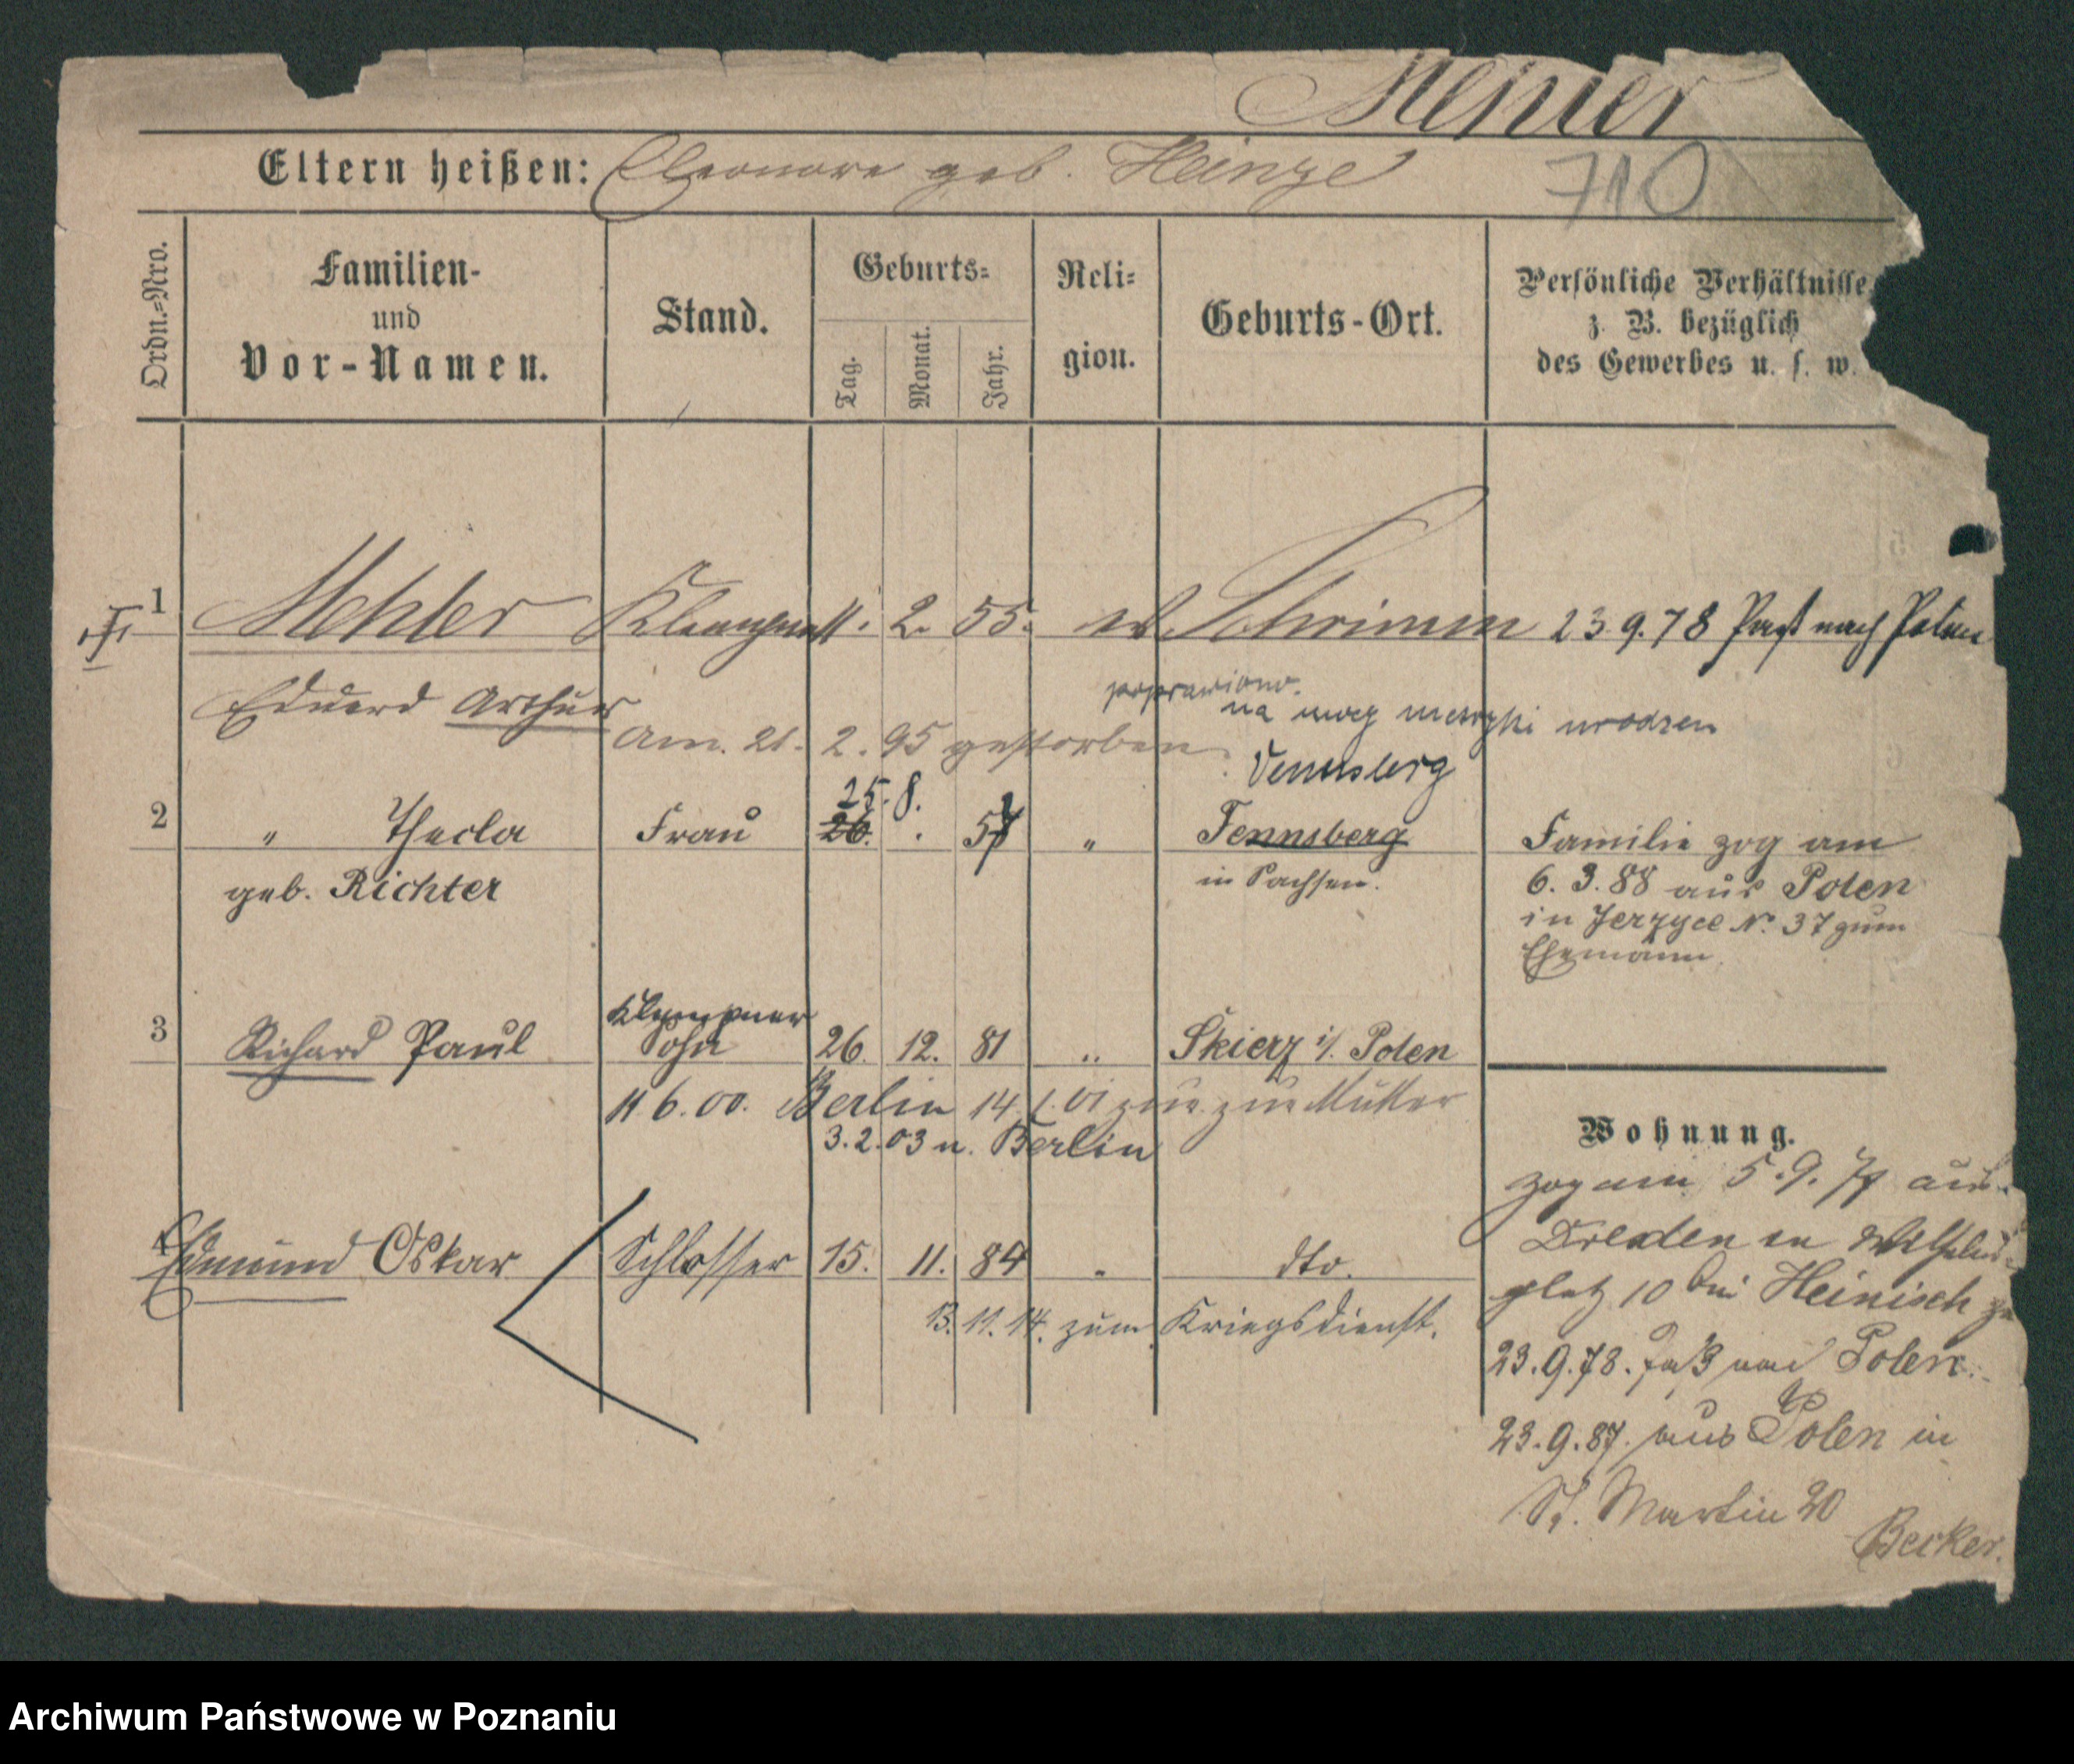 Mehler
Eltern heißen: Eleonore geb. Heinze 710
Ordn.=Nro.
Familien-
und
Vor-Namen.
Stand.
Geburts=
Tag.
Monat.
Jahr.
Reli=
gion.
Geburts-Ort.
Persönliche Verhältnisse
z. B. bezüglich
des Gewerbes u. s. w.
1 Mehler Klempner 11. 2. 55. ev Schrimm 23.9.78 Paß nach Polen
Eduard Arthur
am. 21. 2. 95 gestorben
poprawiono.
na metryki urodzen
Vennsberg
25. 8.
2 " Thecla Frau 26. . 57 " Tennsberg
geb. Richter in Sachsen.
Familie zog am
6. 3. 88 aus Polen
in Jerzyce No. 37 zum
Ehemann.
Klempner
3 Richard Paul Sohn 26. 12. 81 " Skierz i/. Polen
11 6. 00. Berlin 14. 1. 01 zur Mutter
3.2.03 n. Berlin
4 Edmund Oskar Schlosser 15. 11. 84 " dto.
13. 11. 14. zum Kriegsdienst.
Wohnung.
zog am 5. 9. 77 aus
Dresden in Wilhelms-
platz 10 bei Heinisch zu
23.9.78. Paß nach Polen.
23.9.87. aus Polen in
St. Martin 20
Becker.
Archiwum Państwowe w Poznaniu